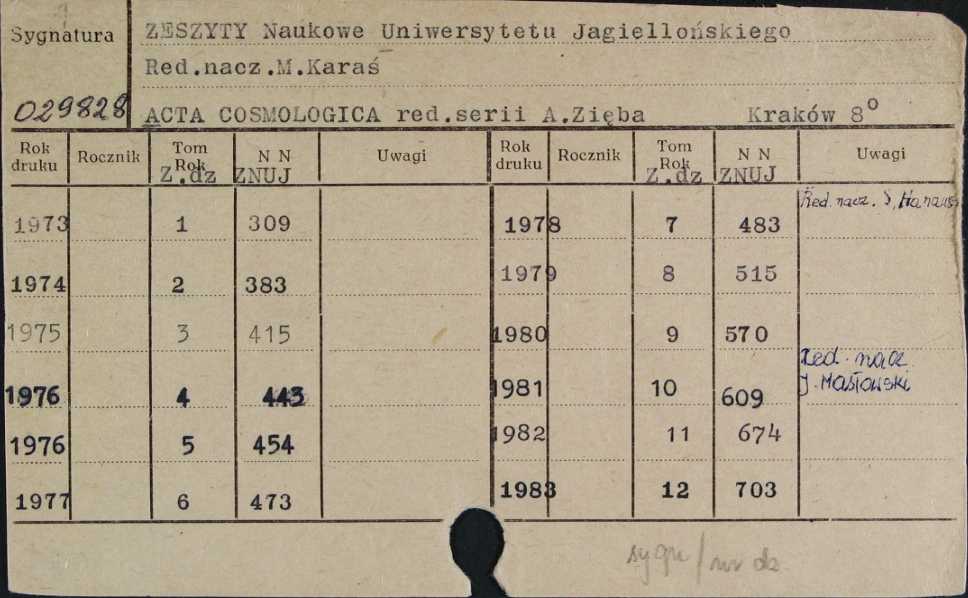 Sygnatura
ZESZYTY Naukowe Uniwersytetu Jagiellońskiego
Red.nacz.M.Karaś
029828
ACTA COSMOLOGICA red.serii A.Zięba Kraków 8°
Rok druku Rocznik Tom Rok Z.dz N N ZNUJ Uwagi Rok druku Rocznik Tom Rok Z.dz N N ZNUJ Uwagi
1973 1 309
1974 2 383
1975 3 415
1976 4 443
1976 5 454
1977 6 473
1978 7 483 Red. nacz. S.
1979 8 515
1980 9 570
1981 10 609 Red. nacz
J. Masłowski
1982 11 674
1983 12 703
sygn / nr dz